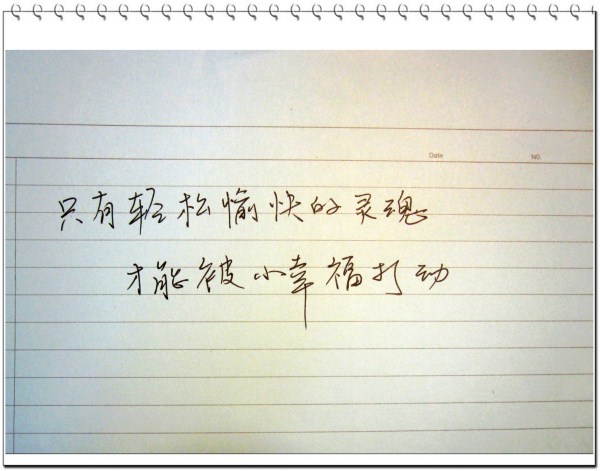 Date NO.
只有轻松愉快的灵魂
才能被小幸福打动